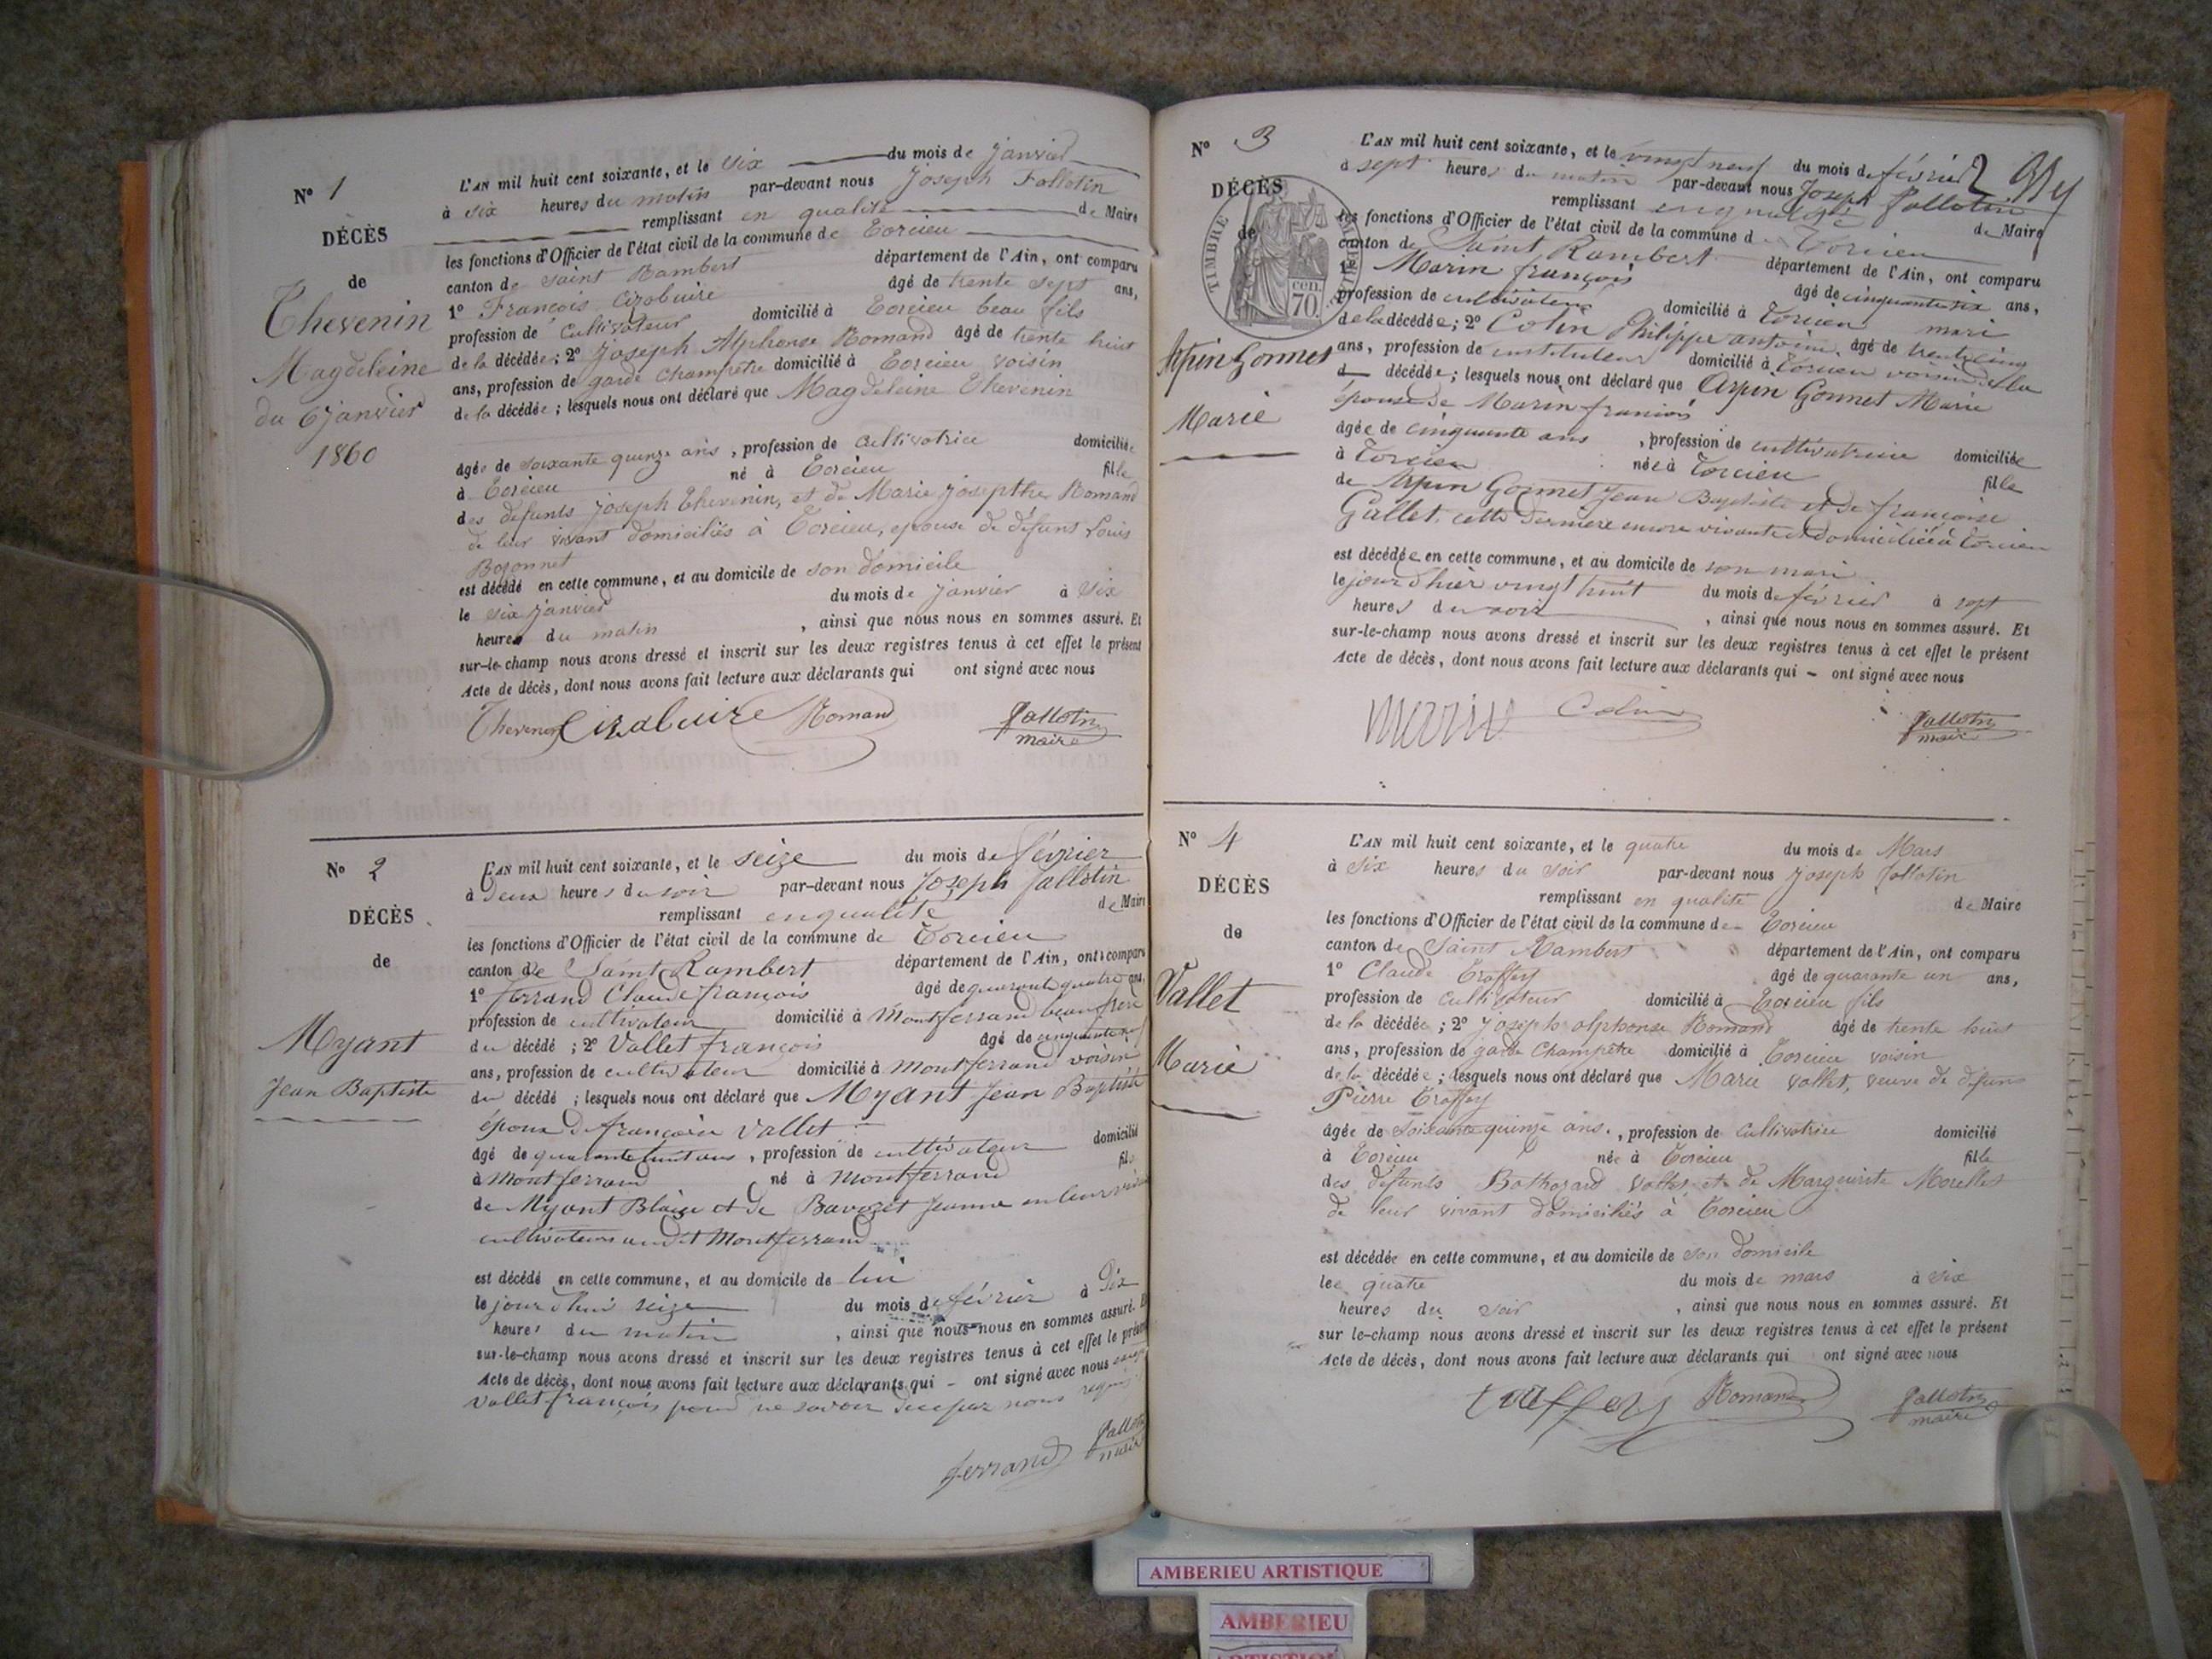 N° 1
DÉCÈS
de
Thevenin
Magdeleine
du 6 janvier
1860
L'AN mil huit cent soixante, et le six du mois de janvier
à six heures du matin par-devant nous Joseph Fallotin
remplissant en qualité de Maire
les fonctions d'Officier de l'état civil de la commune de Torcieu
canton de Saint Rambert département de l'Ain, ont comparu
1° François Cizabuire âgé de trente sept ans,
profession de Cultivateur domicilié à Torcieu beau fils
de la décédée; 2° Joseph Alphonse Romand âgé de trente huit
ans, profession de garde Champêtre domicilié à Torcieu voisin
de la décédée; lesquels nous ont déclaré que Magdeleine Thevenin
âgée de soixante quinze ans, profession de Cultivatrice domiciliée
à Torcieu né à Torcieu fille
des défunts Joseph Thevenin, et de Marie Josepthe Romand
de leur vivant domiciliés à Torcieu, épouse de défunt Louis
Bozonnet
est décédé en cette commune, et au domicile de son domicile
le six janvier du mois de janvier à six
heures du matin, ainsi que nous nous en sommes assuré. Et
sur-le-champ nous avons dressé et inscrit sur les deux registres tenus à cet effet le présent
Acte de décès, dont nous avons fait lecture aux déclarants qui ont signé avec nous
Thevenon Cizabuire Romand fallotin
maire
N° 2
DÉCÈS
de
Myant
Jean Baptiste
L'AN mil huit cent soixante, et le seize du mois de février
à deux heures du soir par-devant nous Joseph fallotin
remplissant en qualité de Maire
les fonctions d'Officier de l'état civil de la commune de Torcieu
canton de Saint Rambert département de l'Ain, ont comparu
1° Ferrand Claude françois âgé de quarante quatre ans,
profession de cultivateur domicilié à Montferrand beau frère
du décédé; 2° Vallet françois âgé de cinquante
ans, profession de cultivateur domicilié à Montferrand voisin
du décédé; lesquels nous ont déclaré que Myant Jean Baptiste
époux de françoise Vallet
âgé de quarante huit ans, profession de cultivateur domicilié
à Montferrand né à Montferrand fils
de Myant Blaise et de Bavozet Jeanne en leur vivant
cultivateurs audit Montferrand
est décédé en cette commune, et au domicile de lui
le jour d'hui seize du mois de février à Six
heures du matin, ainsi que nous nous en sommes assuré. Et
sur-le-champ nous avons dressé et inscrit sur les deux registres tenus à cet effet le présent
Acte de décès, dont nous avons fait lecture aux déclarants qui - ont signé avec nous
Vallet françois pour ne savoir de ce par nous requis
ferrand fallotin
maire
N° 3
DÉCÈS
de
TIMBRE
70.
cen.
Arpin Gonnet
Marie
L'AN mil huit cent soixante, et le vingt neuf du mois de février
à sept heures du matin par-devant nous Joseph fallotin
remplissant en qualité de Maire
les fonctions d'Officier de l'état civil de la commune de Torcieu
canton de Saint Rambert département de l'Ain, ont comparu
1° Marin françois âgé de cinquante six ans,
profession de cultivateur domicilié à Torcieu mari
de la décédée; 2° Colin Philippe antoine, âgé de trente cinq
ans, profession de instituteur domicilié à Torcieu voisin de la
d décédée; lesquels nous ont déclaré que Arpin Gonnet Marie
épouse de Marin françois
âgée de cinquante ans, profession de cultivatrice domiciliée
à Torcieu née à Torcieu fille
de Arpin Gonnet Jean Baptiste et de françoise
Gallet, cette dernière encore vivante et domiciliée à Torcieu
est décédée en cette commune, et au domicile de son mari
le jour d'hier vingt huit du mois de février à sept
heures du soir, ainsi que nous nous en sommes assuré. Et
sur-le-champ nous avons dressé et inscrit sur les deux registres tenus à cet effet le présent
Acte de décès, dont nous avons fait lecture aux déclarants qui - ont signé avec nous
Marin Colin fallotin
maire
N° 4
DÉCÈS
de
Vallet
Marie
L'AN mil huit cent soixante, et le quatre du mois de Mars
à six heures du soir par-devant nous Joseph fallotin
remplissant en qualité de Maire
les fonctions d'Officier de l'état civil de la commune de Torcieu
canton de Saint Rambert département de l'Ain, ont comparu
1° Claude Traffey âgé de quarante un ans,
profession de Cultivateur domicilié à Torcieu fils
de la décédée; 2° Joseph alphonse Romand âgé de trente huit
ans, profession de garde Champêtre domicilié à Torcieu voisin
de la décédée; lesquels nous ont déclaré que Marie Vallet, veuve de défunt
Pierre Traffey
âgée de Soixante quinze ans, profession de Cultivatrice domicilié
à Torcieu née à Torcieu fille
des défunts Vallet et de Marguerite Morellet
de leur vivant domiciliés à Torcieu
est décédée en cette commune, et au domicile de son domicile
lee quatre du mois de mars à six
heures du soir, ainsi que nous nous en sommes assuré. Et
sur le-champ nous avons dressé et inscrit sur les deux registres tenus à cet effet le présent
Acte de décès, dont nous avons fait lecture aux déclarants qui ont signé avec nous
traffey Romand fallotin
maire
AMBERIEU ARTISTIQUE
AMBERIEU
ARTISTIQUE